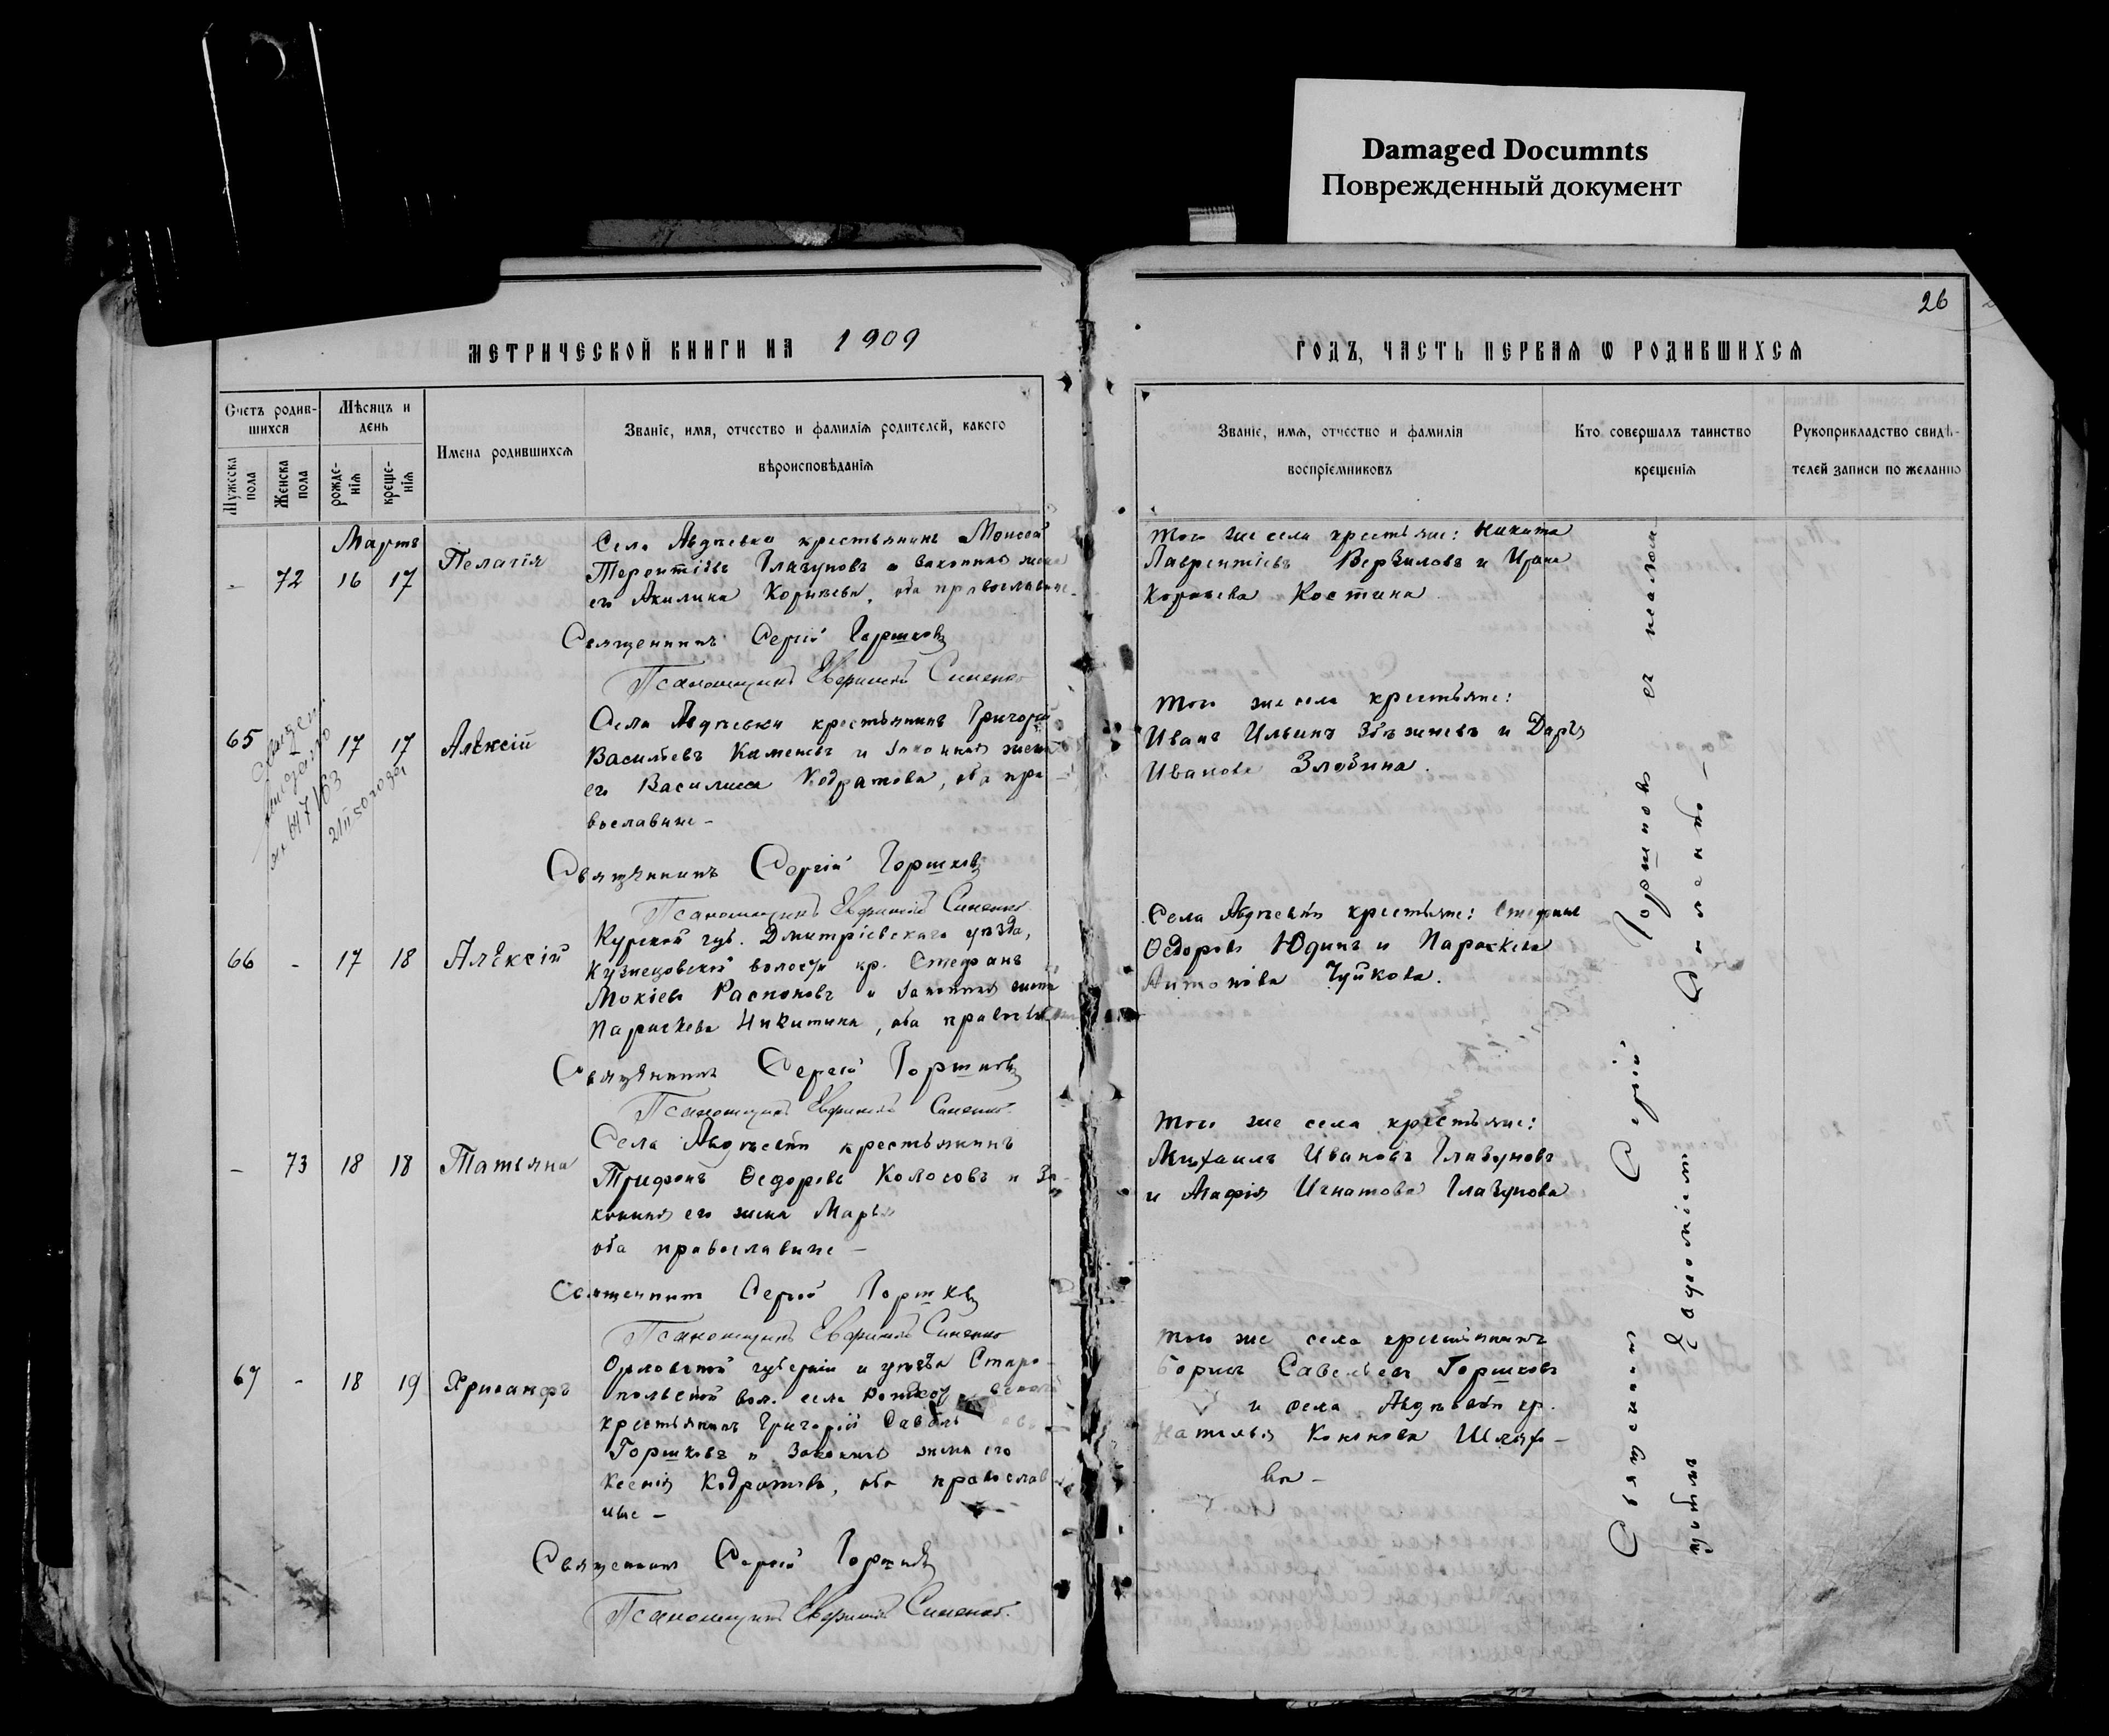 Damaged Documnts
Поврежденный документ
26
МЕТРИЧЕСКОЙ КНИГИ НА 1909
ГОДЪ, ЧАСТЬ ПЕРВАЯ Ѡ РОДИВШИХСЯ
Счетъ родив-
шихся
Мужеска
пола
Женска
пола
Мѣсяцъ и
день
рожде-
нія
креще-
нія
Имена родившихся
Званіе, имя, отчество и фамилія родителей, какого
вѣроисповѣданія
Званіе, имя, отчество и фамилія
воспріемниковъ
Кто совершалъ таинство
крещенія
Рукоприкладство свидѣ-
телей записи по желанію
Мартъ
- 72 16 17 Пелагія
Села Авдѣевки крестьянинъ Моисей
Терентіевъ Глазуновъ и законная жена
его Акилина, оба православные
Священникъ Сергій Горшковъ
Псаломщикъ Евфимій Синенко
Того же села крестьяне: Никита
Лаврентіевъ Верзиловъ и
Костина
65 - 17 17 Алексій
Села Авдѣевки крестьянинъ Григорій
Васильевъ Каменевъ и законная жена
его Василиса Кодратова, оба пра-
вославные -
Священникъ Сергій Горшковъ
Псаломщикъ Евфимій Синенко
Того же села крестьяне:
Иванъ Ильинъ и Дарья
Иванова Злобина.
66 - 17 18 Алексій
Курской губ. Дмитріевскаго уѣзда,
Кузнецовской волости кр. Стефанъ
Мокіевъ Распоповъ и законная жена
Параскева Никитина, оба православные
Священникъ Сергій Горшковъ
Псаломщикъ Евфимій Синенко
Села Авдѣевки крестьяне: Стефанъ
Ѳедоровъ Юдинъ и Параскева
Антонова Чуйкова.
- 73 18 18 Татьяна
Села Авдѣевки крестьянинъ
Трифонъ Ѳедоровъ Колосовъ и за-
конная его жена Марья
оба православные -
Священникъ Сергій Горшковъ
Псаломщикъ Евфимій Синенко
Того же села крестьяне:
Михаилъ Ивановъ Глазуновъ
и Агафія Игнатова Глазунова
67 - 18 19 Хрисанфъ
Орловской губерніи и уѣзда Старо-
польской вол. села
крестьянинъ Григорій
Горшковъ и законная жена его
Ксенія Кодратова, оба православ
ные -
Священникъ Сергій Горшковъ
Псаломщикъ Евфимій Синенко
Того же села крестьянинъ
Борисъ Савельевъ Горшковъ
и села Авдѣевки кр.
Наталья Кононова Шляхо-
ва -
Священникъ Сергій Горшковъ съ псалом
щикомъ Евфиміемъ Синенко -